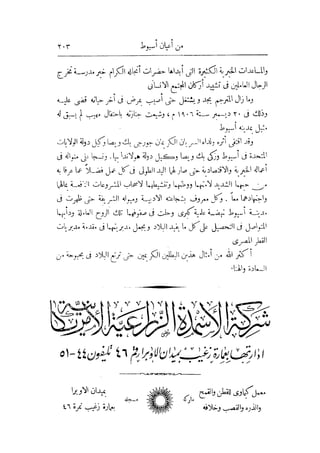 من أعيان أسيوط ٢٠٣
والمساعدات الخيرية الكثيرة التى أبداها حضرات أنجاله الكرام خير مدرسة تخرج
الرجال العاملين فى تشييد أركان المجتمع الانسانى
وما زال المترجم يجد ويشتغل حتى أصيب بمرض فى آخر حياته قضى عليه
وذلك فى ٢٠ ديسمبر سنة ١٩٠٦ م، وشيعت جنازته باحتفال مهيب لم يسبق له
مثيل بمدينة أسيوط
وقد اقتفى أثره ولداه السريان الكريمان جورجى بك ويصا وكيل دولة الولايات
المتحدة فى أسيوط وزكى بك ويصا وكيل دولة هولاندا بها. ونسجا على منواله فى
أعماله الخيرية والاقتصادية حتى صار لهما اليد الطولى فى كل عمل فضلاً عما عرفا به
من حبهما الشديد لأمتهما ووطنهما وتنشيطهما لأصحاب المشروعات النافعة بمالهما
واجتهادهما معاً. وكل معروف بشجاعته الادبية وميوله الشريفة حتى ظهرت فى
مدينة أسيوط نهضة علمية كبرى وحلت فى صفوفها تلك الروح العاملة ودأبهما
المتواصل فى التحصيل على كل ما يفيد البلاد ويجعل مديريتهما فى مقدمة مديريات
القطر المصرى
أكثر الله من أمثال هذين البطلين الكريمين حتى ترتع البلاد فى بحبوحة من
السعادة والهناء
شركة الأسمدة الزراعية الأمريكانية
ادارتها بعمارة زغيب بميدان الاوبرا نمرة ٤٦ تليفون ٤٤-٥١
معمل كيماوى للقطن والقمح
والذره والقصب وخلافه
ماركة
بميدان الاوبرا
بعمارة زغيب نمرة ٤٦